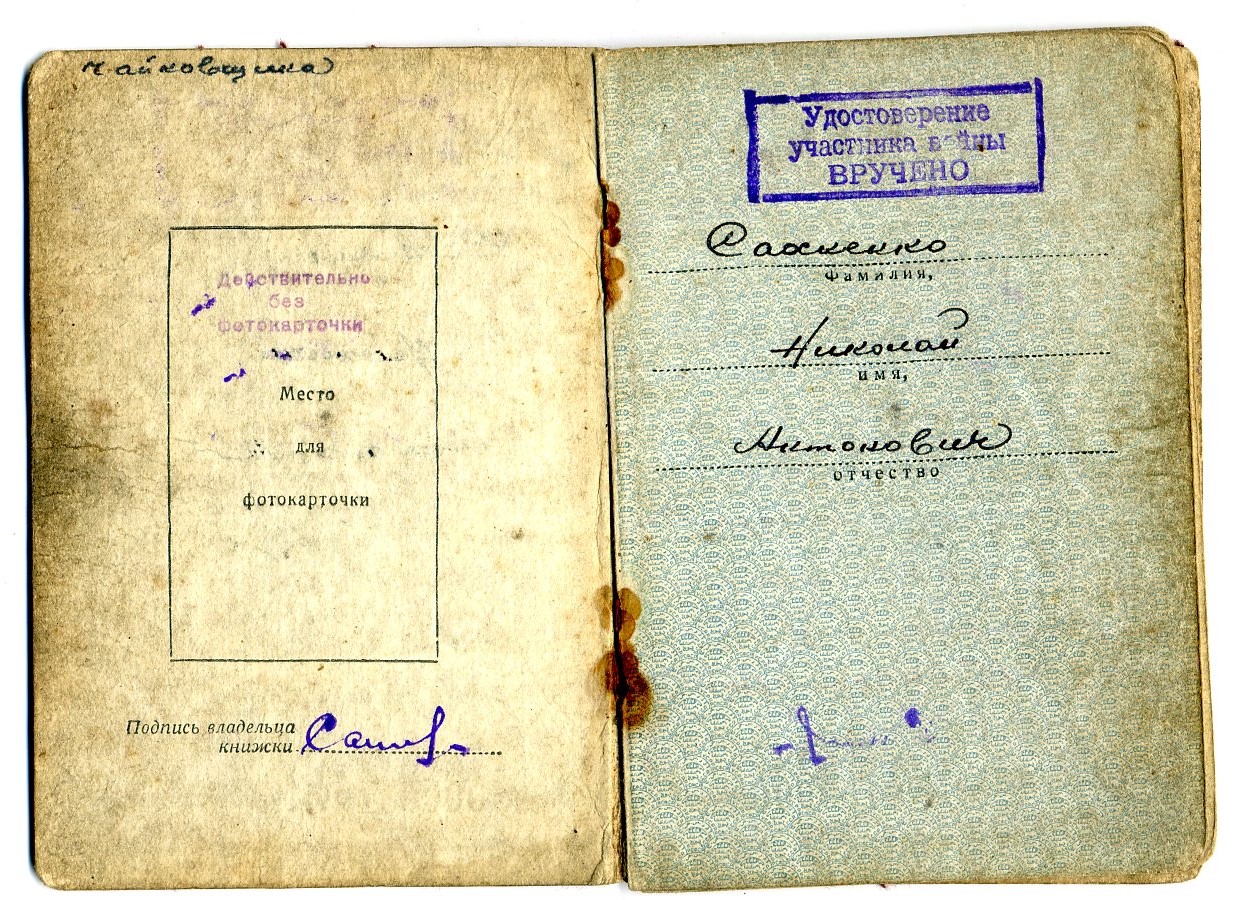 Чайковщина
Действительно
без
фотокарточки
Место
для
фотокарточки
Подпись владельца
книжки
Удостоверение
участника войны
ВРУЧЕНО
Сахненко
Фамилия,
Николай
имя,
Антонович
отчество